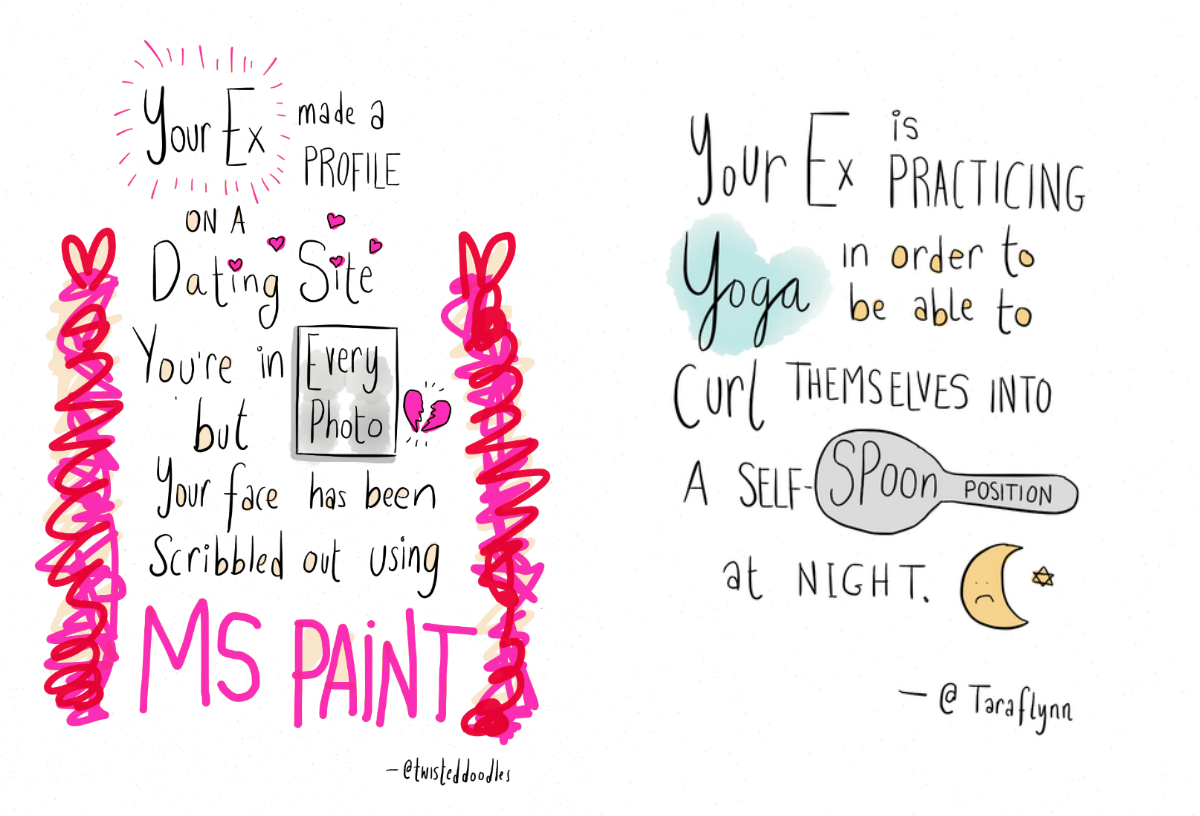 Your Ex made a
PROFILE
ON A
Dating Site
You're in Every
but Photo
Your face has been
Scribbled out using
MS PAINT
- @twisteddoodles
Your Ex is
PRACTICING
Yoga in order to
be able to
Curl THEMSELVES INTO
A SELF-SPOON POSITION
at NIGHT.
- @Taraflynn